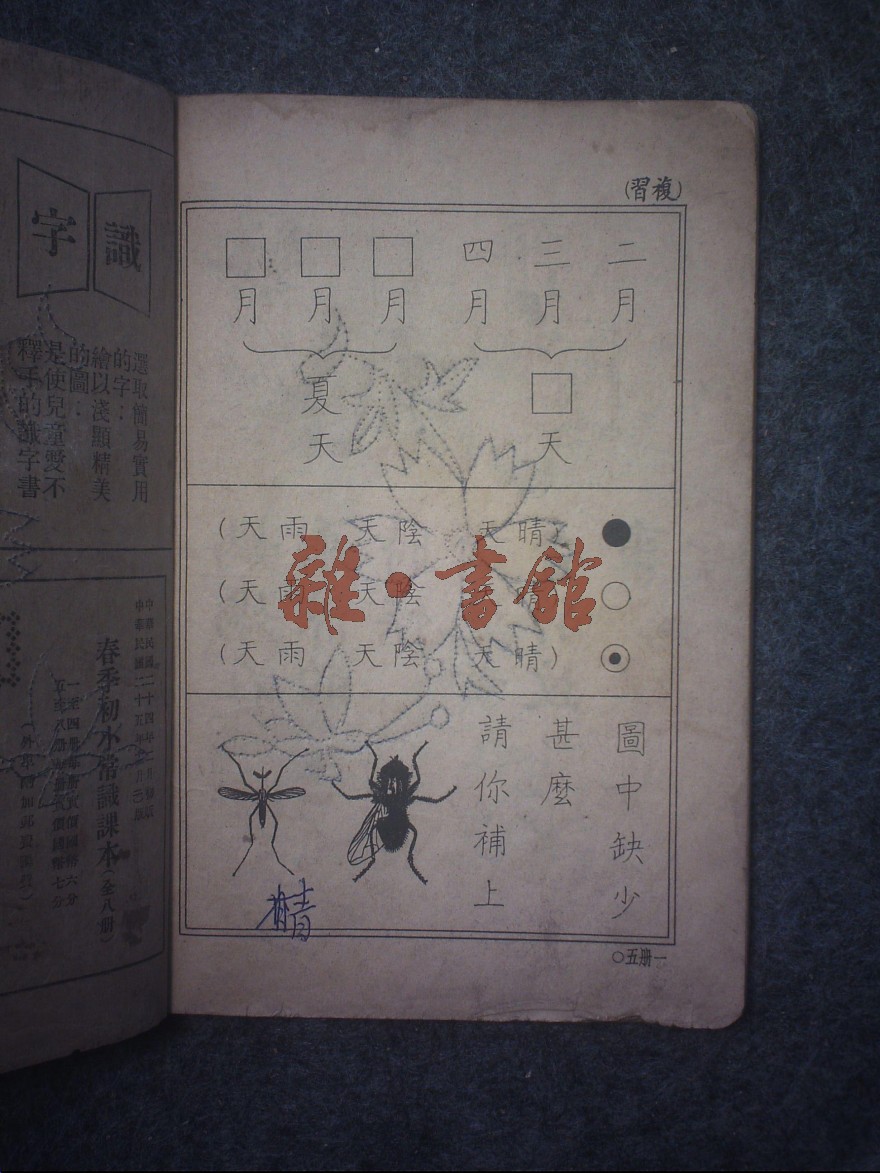 (複習)
二月
三月
四月
□天
□月
□月
□月
夏天
(天雨 天陰 天晴)
(天雨 天陰
(天雨 天陰 天晴)
圖中缺少
甚麼
請你補上
晴
一册五〇
雜·書館
識字
選取簡易實用
的字：
繪以淺顯精美
的圖：
是使兒童愛不
釋手的識字書
春季初小常識課本(全八册)